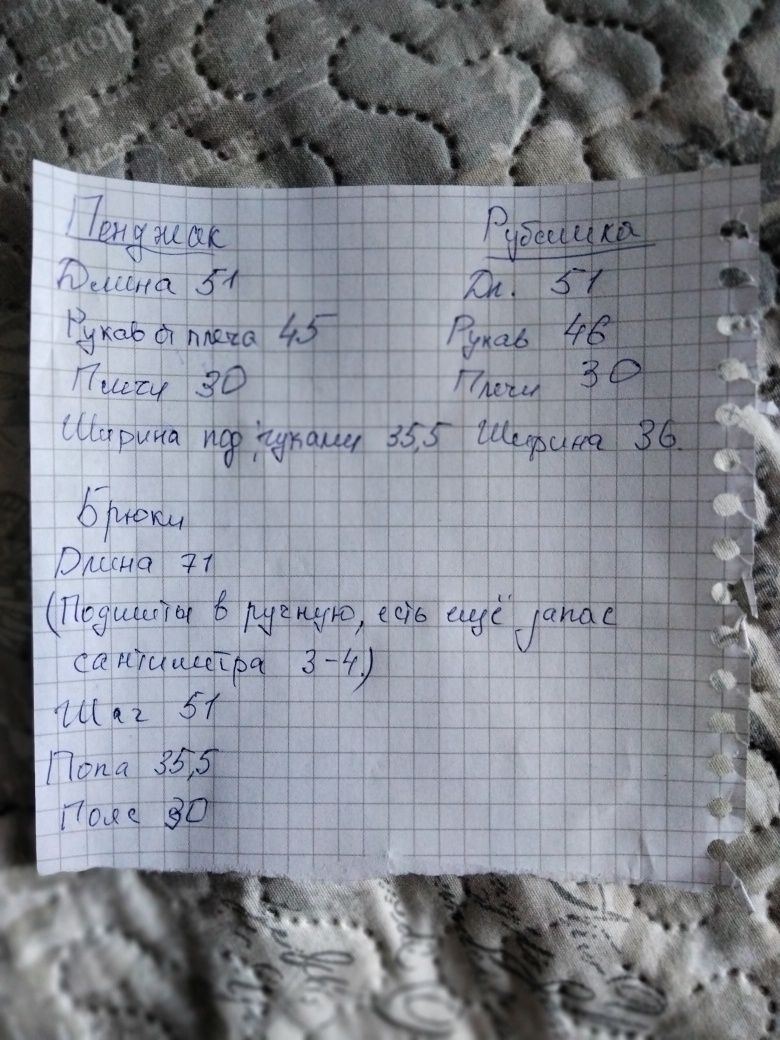 Пенджак Рубашка
Длина 51 Дл. 51
Рукав от плеча 45 Рукав 46
Плечи 30 Плечи 30
Ширина под руками 35,5 Ширина 36.
Брюки
Длина 71
(Подшиты в ручную, есть ещё запас
сантиметра 3-4.)
Шаг 51
Попа 35,5
Пояс 30